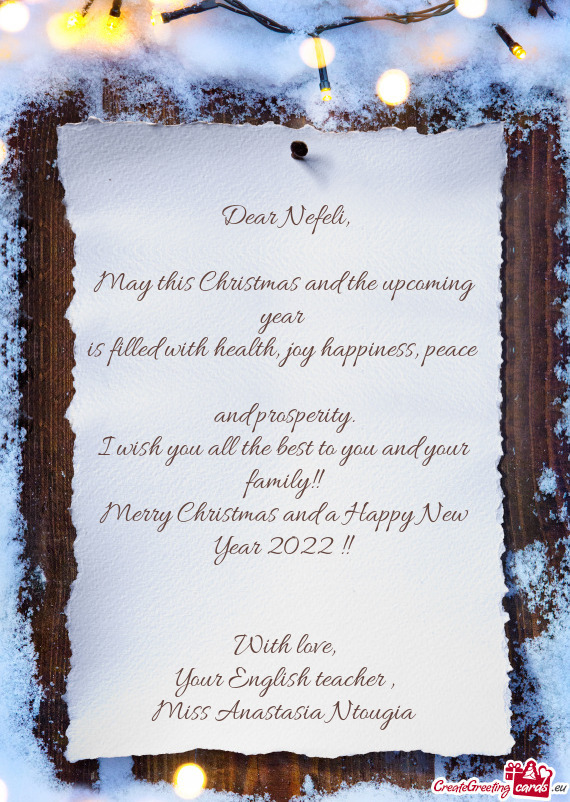 Dear Nefeli,
May this Christmas and the upcoming
year
is filled with health, joy happiness, peace
and prosperity.
I wish you all the best to you and your
family!!
Merry Christmas and a Happy New
Year 2022 !!
With love,
Your English teacher ,
Miss Anastasia Ntougia
CreateGreeting cards .eu